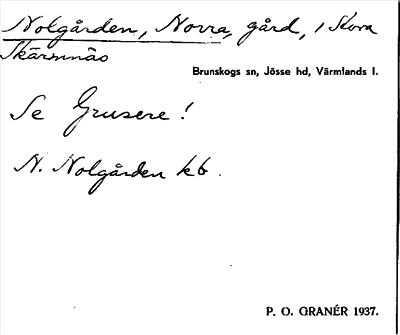 Nolgården, Norra, gård, i Stora
Skärmnäs
Brunskogs sn, Jösse hd, Värmlands l.
Se Grusere!
N. Nolgården kb.
P. O. GRANÉR 1937.